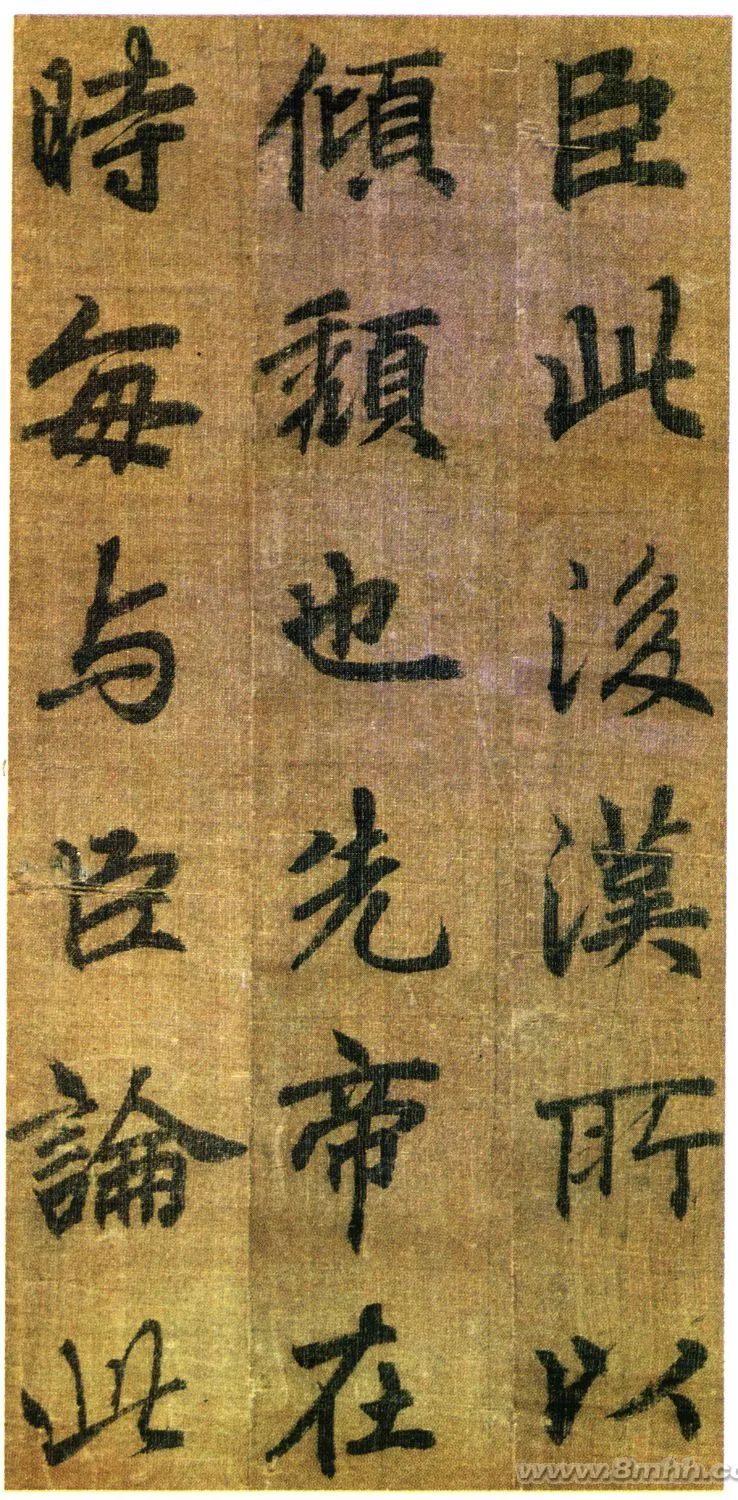 臣此後漢所以
傾頹也先帝在
時每与臣論此
www.8mhh.c